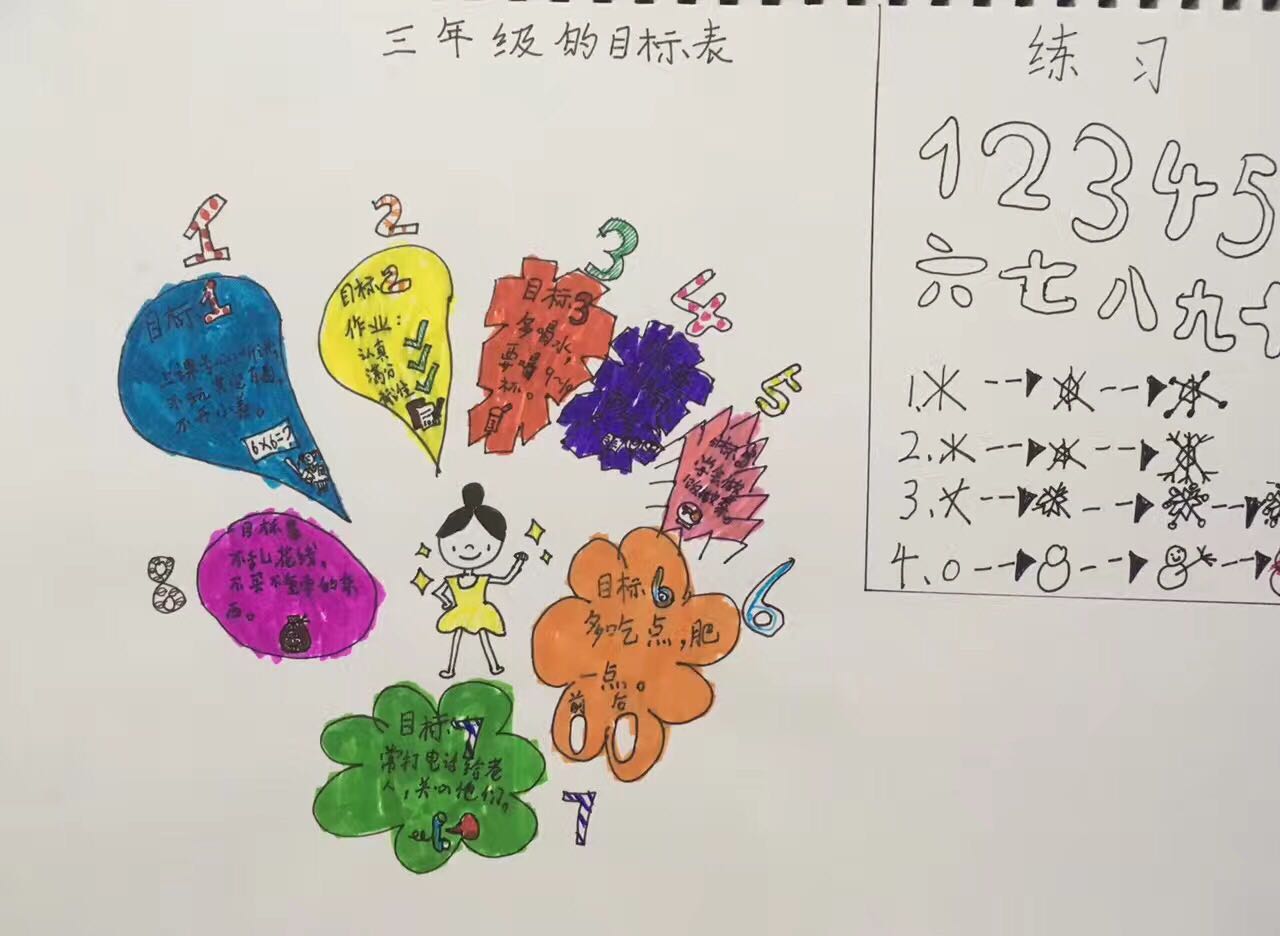 三年级的目标表
1
目标1
上课专心听讲,
不玩其他东西。
不开小差。
6×6=?
2
目标2
作业:
认真
满分
3
目标3
多喝水,
要喝9~10
杯。
4
5
目标5
6
目标6
多吃点,肥
一点。
前 后
7
目标7
常打电话给老
人,关心他们。
8
目标8
不乱花钱,
不买不重要的东
西。
练习
1 2 3 4 5
六 七 八 九 十
1.
2.
3.
4.